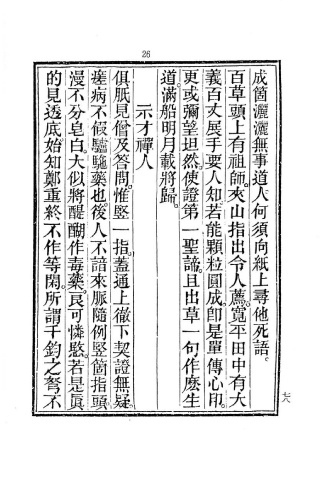 26
成箇灑灑無事道人何須向紙上尋他死語。
百草頭上有祖師。夾山指出令人薦。寬平田中有大
義百丈展手要人知若能顆粒圓成。卽是單傳心印。
更或彌望坦然使證第一聖諦。且出草一句作麽生
道。滿船明月載將歸。
示才禪人
俱胝見僧及答問。惟竪一指。蓋通上徹下契證無疑。
瘥病不假驢駞藥也。後人不諳來脈隨例竪箇指頭
漫不分皂白。大似將醍醐作毒藥。良可憐愍。若是眞
的見透底始知鄭重終不作等閑。所謂千鈞之弩。不
六